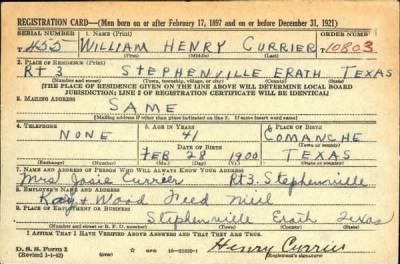 REGISTRATION CARD—(Men born on or after February 17, 1897 and on or before December 31, 1921)
SERIAL NUMBER 1. NAME (Print) ORDER NUMBER
T455 WILLIAM HENRY CURRIER 10803
2. PLACE OF RESIDENCE (Print)
Rt 3 STEPHENVILLE ERATH TEXAS
(Number and street) (Town, township, village, or city) (County) (State)
[THE PLACE OF RESIDENCE GIVEN ON THE LINE ABOVE WILL DETERMINE LOCAL BOARD
JURISDICTION; LINE 2 OF REGISTRATION CERTIFICATE WILL BE IDENTICAL]
3. MAILING ADDRESS
SAME
(Mailing address if other than place indicated on line 2. If same insert word same)
4. TELEPHONE 5. AGE IN YEARS 6. PLACE OF BIRTH
NONE 41 COMANCHE
DATE OF BIRTH (Town or county)
FEB 28 1900 TEXAS
(Exchange) (Number) (Mo.) (Day) (Yr.) (State or country)
7. NAME AND ADDRESS OF PERSON WHO WILL ALWAYS KNOW YOUR ADDRESS
Mrs Josie Currier Rt 3. Stephenville
8. EMPLOYER'S NAME AND ADDRESS
Kay & Wood Feed Mill
9. PLACE OF EMPLOYMENT OR BUSINESS
Stephenville Erath Texas
(Number and street or R. F. D. number) (Town) (County) (State)
I AFFIRM THAT I HAVE VERIFIED ABOVE ANSWERS AND THAT THEY ARE TRUE.
D. S. S. Form 1
(Revised 1-1-42) (over) Henry Currier
(Registrant's signature)